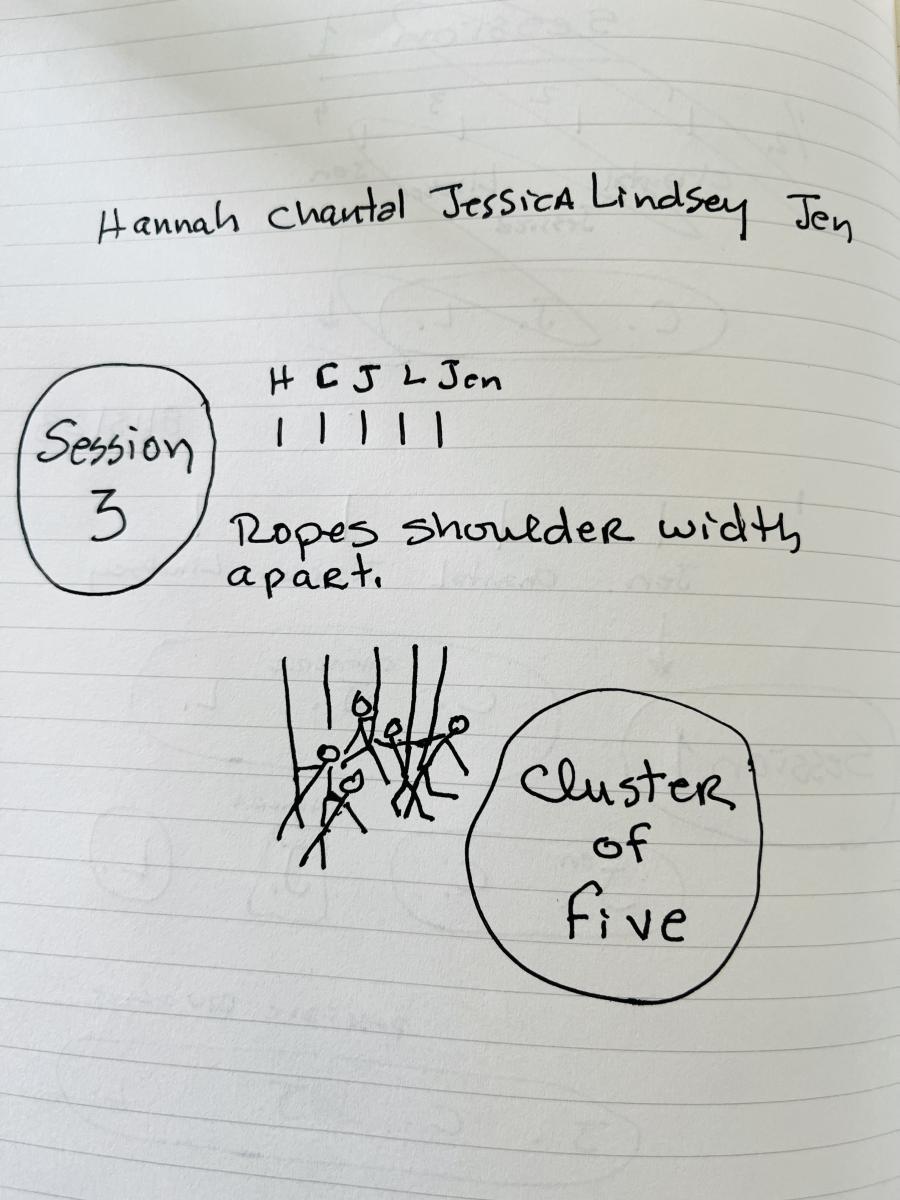 Hannah Chantal JessicA Lindsey Jen
H C J L Jen
Session
3
Ropes shoulder width
apart.
Cluster
of
five